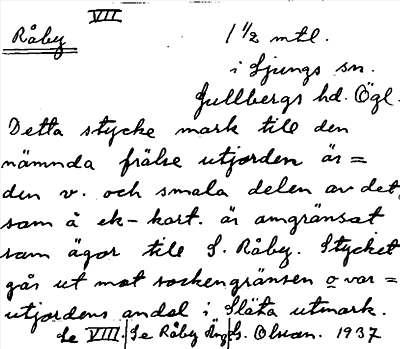 VII
Råby 1 1/2 mtl.
i Ljungs sn.
Gullbergs hd. Ögl.
Detta stycke mark till den
nämnda frälse utjorden är =
den v. och smala delen av det,
som å ek-kart. är amgränsat
som ägor till S. Råby. Stycket
går ut mot sockengränsen o var =
utjordens andel i Släta utmark.
Se VIII. Se Råby Äng G. Olsson. 1937